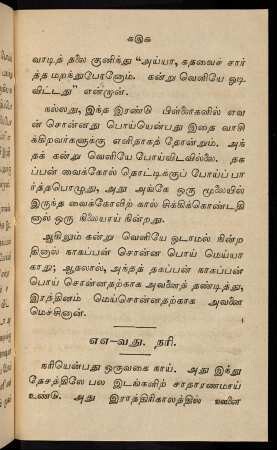 கூகூ
வாடித் தலை குனிந்து "அய்யா, கதவைச் சார்
த்த மறந்துபோனோம். கன்று வெளியே ஓடி
விட்டது" என்றான்.
நல்லது, இந்த இரண்டு பிள்ளைகளில் எவ
ன் சொன்னது பொய்யென்பது இதை வாசி
க்கிறவர்களுக்கு எளிதாகத் தோன்றும். அந்
தக் கன்று வெளியே போய்விடவில்லை. தகப்
பன் வைக்கோல் தொட்டிக்குப் போய்ப் பா
ர்த்தபொழுது, அது அங்கே ஒரு மூலையில்
இருந்த வைக்கோலிற் கால் சிக்கிக்கொண்டத
னால் ஒரு நிலையாய் நின்றது.
ஆகிலும் கன்று வெளியே ஓடாமல் நின்ற
தினால் நாகப்பன் சொன்ன பொய் மெய்யா
காது; ஆதலால், அந்தத் தகப்பன் நாகப்பன்
பொய் சொன்னதற்காக அவனைத் தண்டித்து,
இரத்தினம் மெய்சொன்னதற்காக அவனை
மெச்சினான்.
எஎ-வது. நரி.
நரியென்பது ஒருவகை நாய். அது இந்து
தேசத்திலே பல இடங்களிற் சாதாரணமாய்
உண்டு. அது இராத்திரிகாலத்தில் ஊளை